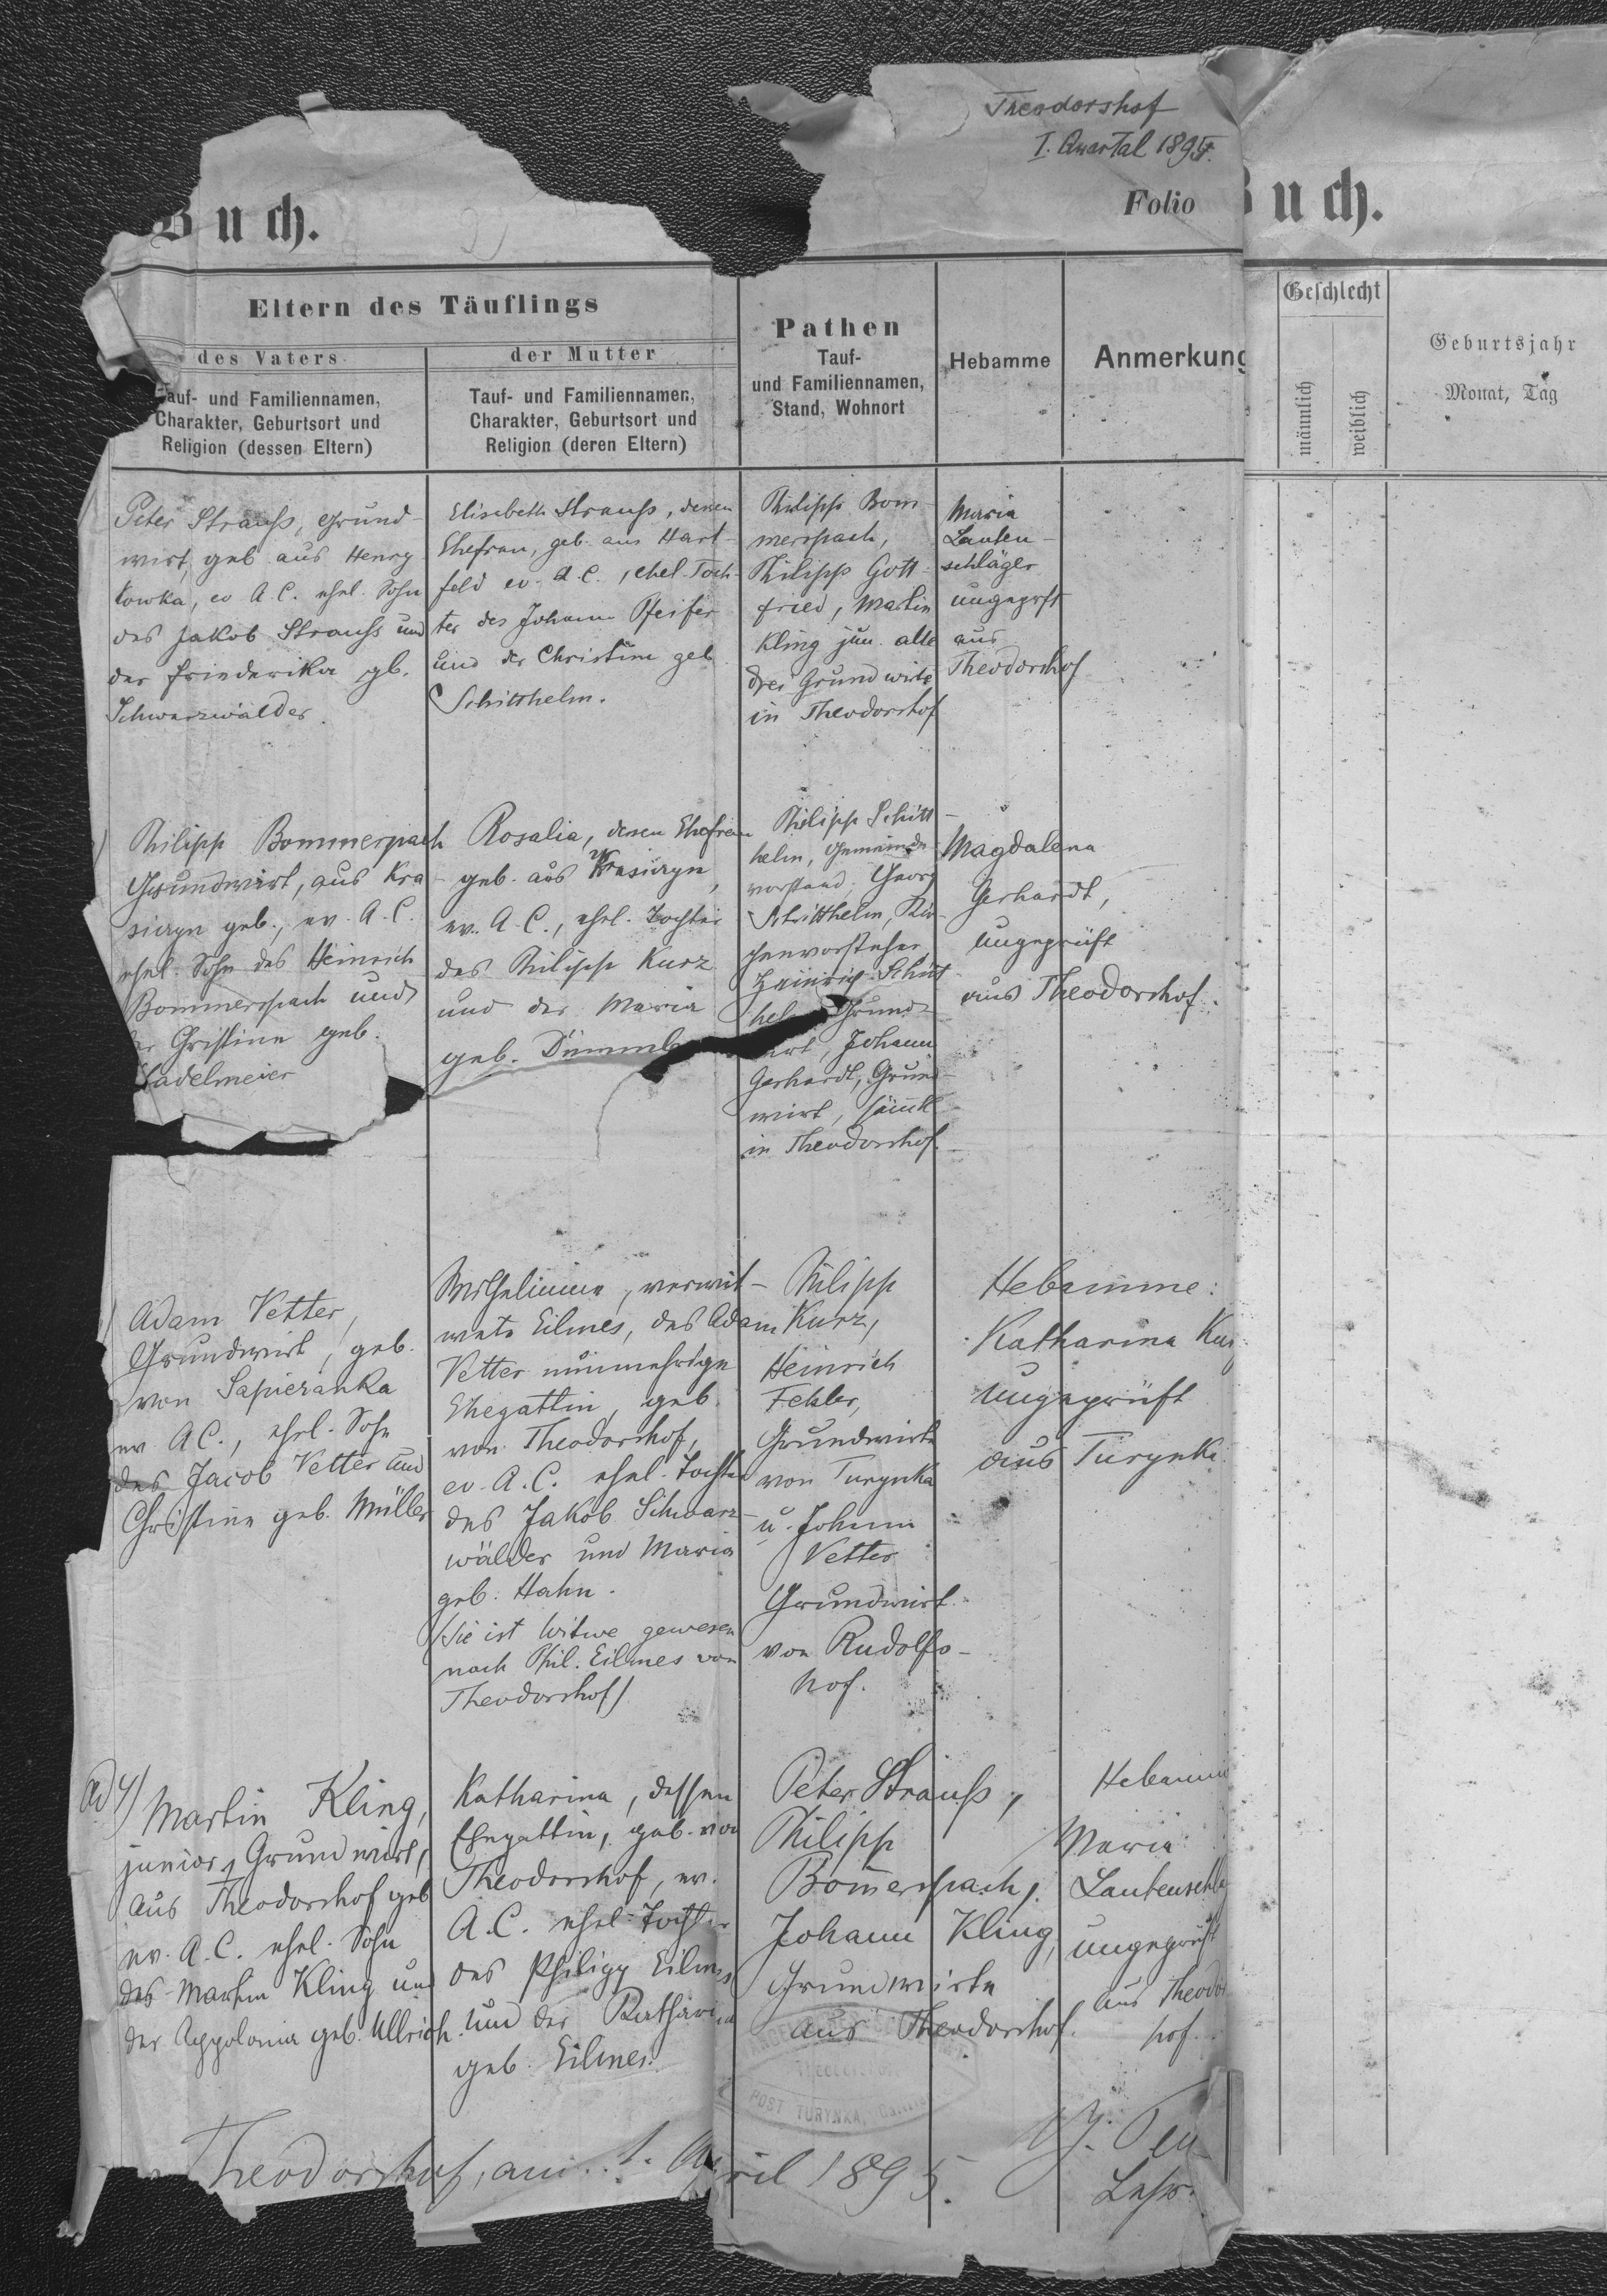 Theodorshof
I. Quartal 1895.
Buch.
Folio
Eltern des Täuflings
des Vaters
Tauf- und Familiennamen,
Charakter, Geburtsort und
Religion (dessen Eltern)
der Mutter
Tauf- und Familiennamen,
Charakter, Geburtsort und
Religion (deren Eltern)
Pathen
Tauf-
und Familiennamen,
Stand, Wohnort
Hebamme
Anmerkung
uch.
Geschlecht
männlich
weiblich
Geburtsjahr
Monat, Tag
Peter Strauß, Grund-
wirt, geb aus Henry
kowka, ev A. C. ehel. Sohn
des Jakob Strauß und
der Friederika gb.
Schwarzwälder.
Elisabeth Strauß, dessen
Ehefrau, geb. aus Hart-
feld ev. A. C., ehel. Toch-
ter des Johann Pfeifer
und der Christine geb
Schitthelm.
Philipp Bom-
merspach,
Philipp Gott-
fried, Martin
Kling jun. alle
drei Grundwirte
in Theodorshof
Maria
Lauten-
schläger
ungeprft
aus
Theodorshof
Philipp Bommerspach
Grundwirt, aus Kra-
siczyn geb., ev. A. C.
ehel. Sohn des Heinrich
Bommerspach und
der Christine geb.
Stadelmeier
Rosalia, dessen Ehefrau
geb. aus Krasiczyn,
ev. A. C., ehel. Tochter
des Philipp Kurz
und der Maria
geb. Dümml
Philipp Schitt-
helm, Gemeinde-
vorstand, Georg
Schitthelm, Kir-
chenvorsteher
Heinrich Schitt-
hel Grund-
wirt, Johann
Gerhardt, Grund-
wirt, sämtl
in Theodorshof.
Magdalena
Gerhardt,
ungeprüft
aus Theodorshof.
Adam Vetter,
Grundwirt, geb.
von Sapieżanka
ev. A C., ehel. Sohn
des Jacob Vetter und
Christine geb. Müller
Wilhelmine, verwit-
wete Eilmes, des Adam
Vetter nunmehrige
Ehegattin, geb.
von Theodorshof,
ev. A. C. ehel. Tochter
des Jakob Schwarz-
wälder und Maria
geb. Hahn.
(Sie ist Witwe gewesen
nach Phil. Eilmes von
Theodorshof)
Philipp
Kurz,
Heinrich
Fehler,
Grundwirte
von Turynka
u. Johann
Vetter
Grundwirt
von Rudolfs-
hof.
Hebamme:
Katharina Kurz
ungeprüft
aus Turynka.
Ad 4) Martin Kling,
junior, Grundwirt,
aus Theodorshof geb
ev. A. C. ehel. Sohn
des Martin Kling und
der Appolonia geb. Ullrich.
Katharina, dessen
Ehegattin, geb. von
Theodorshof, ev.
A. C. ehel. Tochter
des Philipp Eilmes
und der Katharina
geb. Eilmes.
Peter Strauß,
Philipp
Bomerspach,
Johann Kling,
Grundwirte
aus Theodorshof.
Hebamme
Maria
Lautenschlä
ungeprüft
aus Theodors
hof.
POST TURYNKA,
Theodorshof, am 1. April 1895.
Lehr.